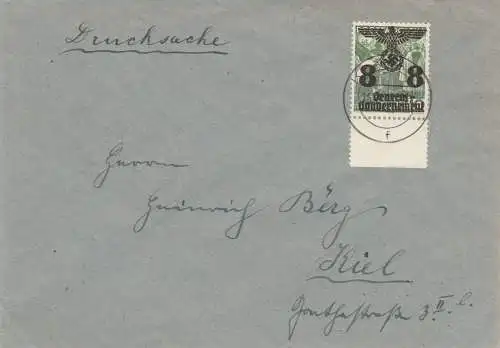 Drucksache
8 8
General-
Gouvernement
f
Herrn
Heinrich Börg
Kiel
Goethestraße 3 II. l.